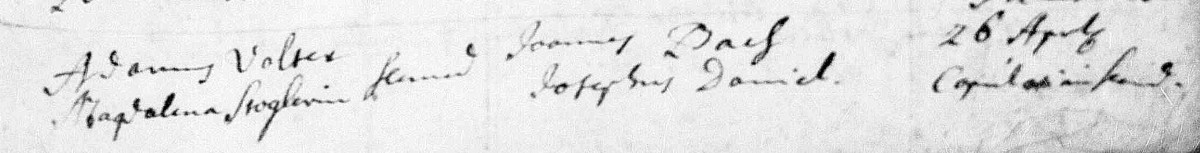 Adamus Volter
Magdalena Stoglerin
Joannes Bach
Josephus Daniel.
26 Aprilis
Copulati in